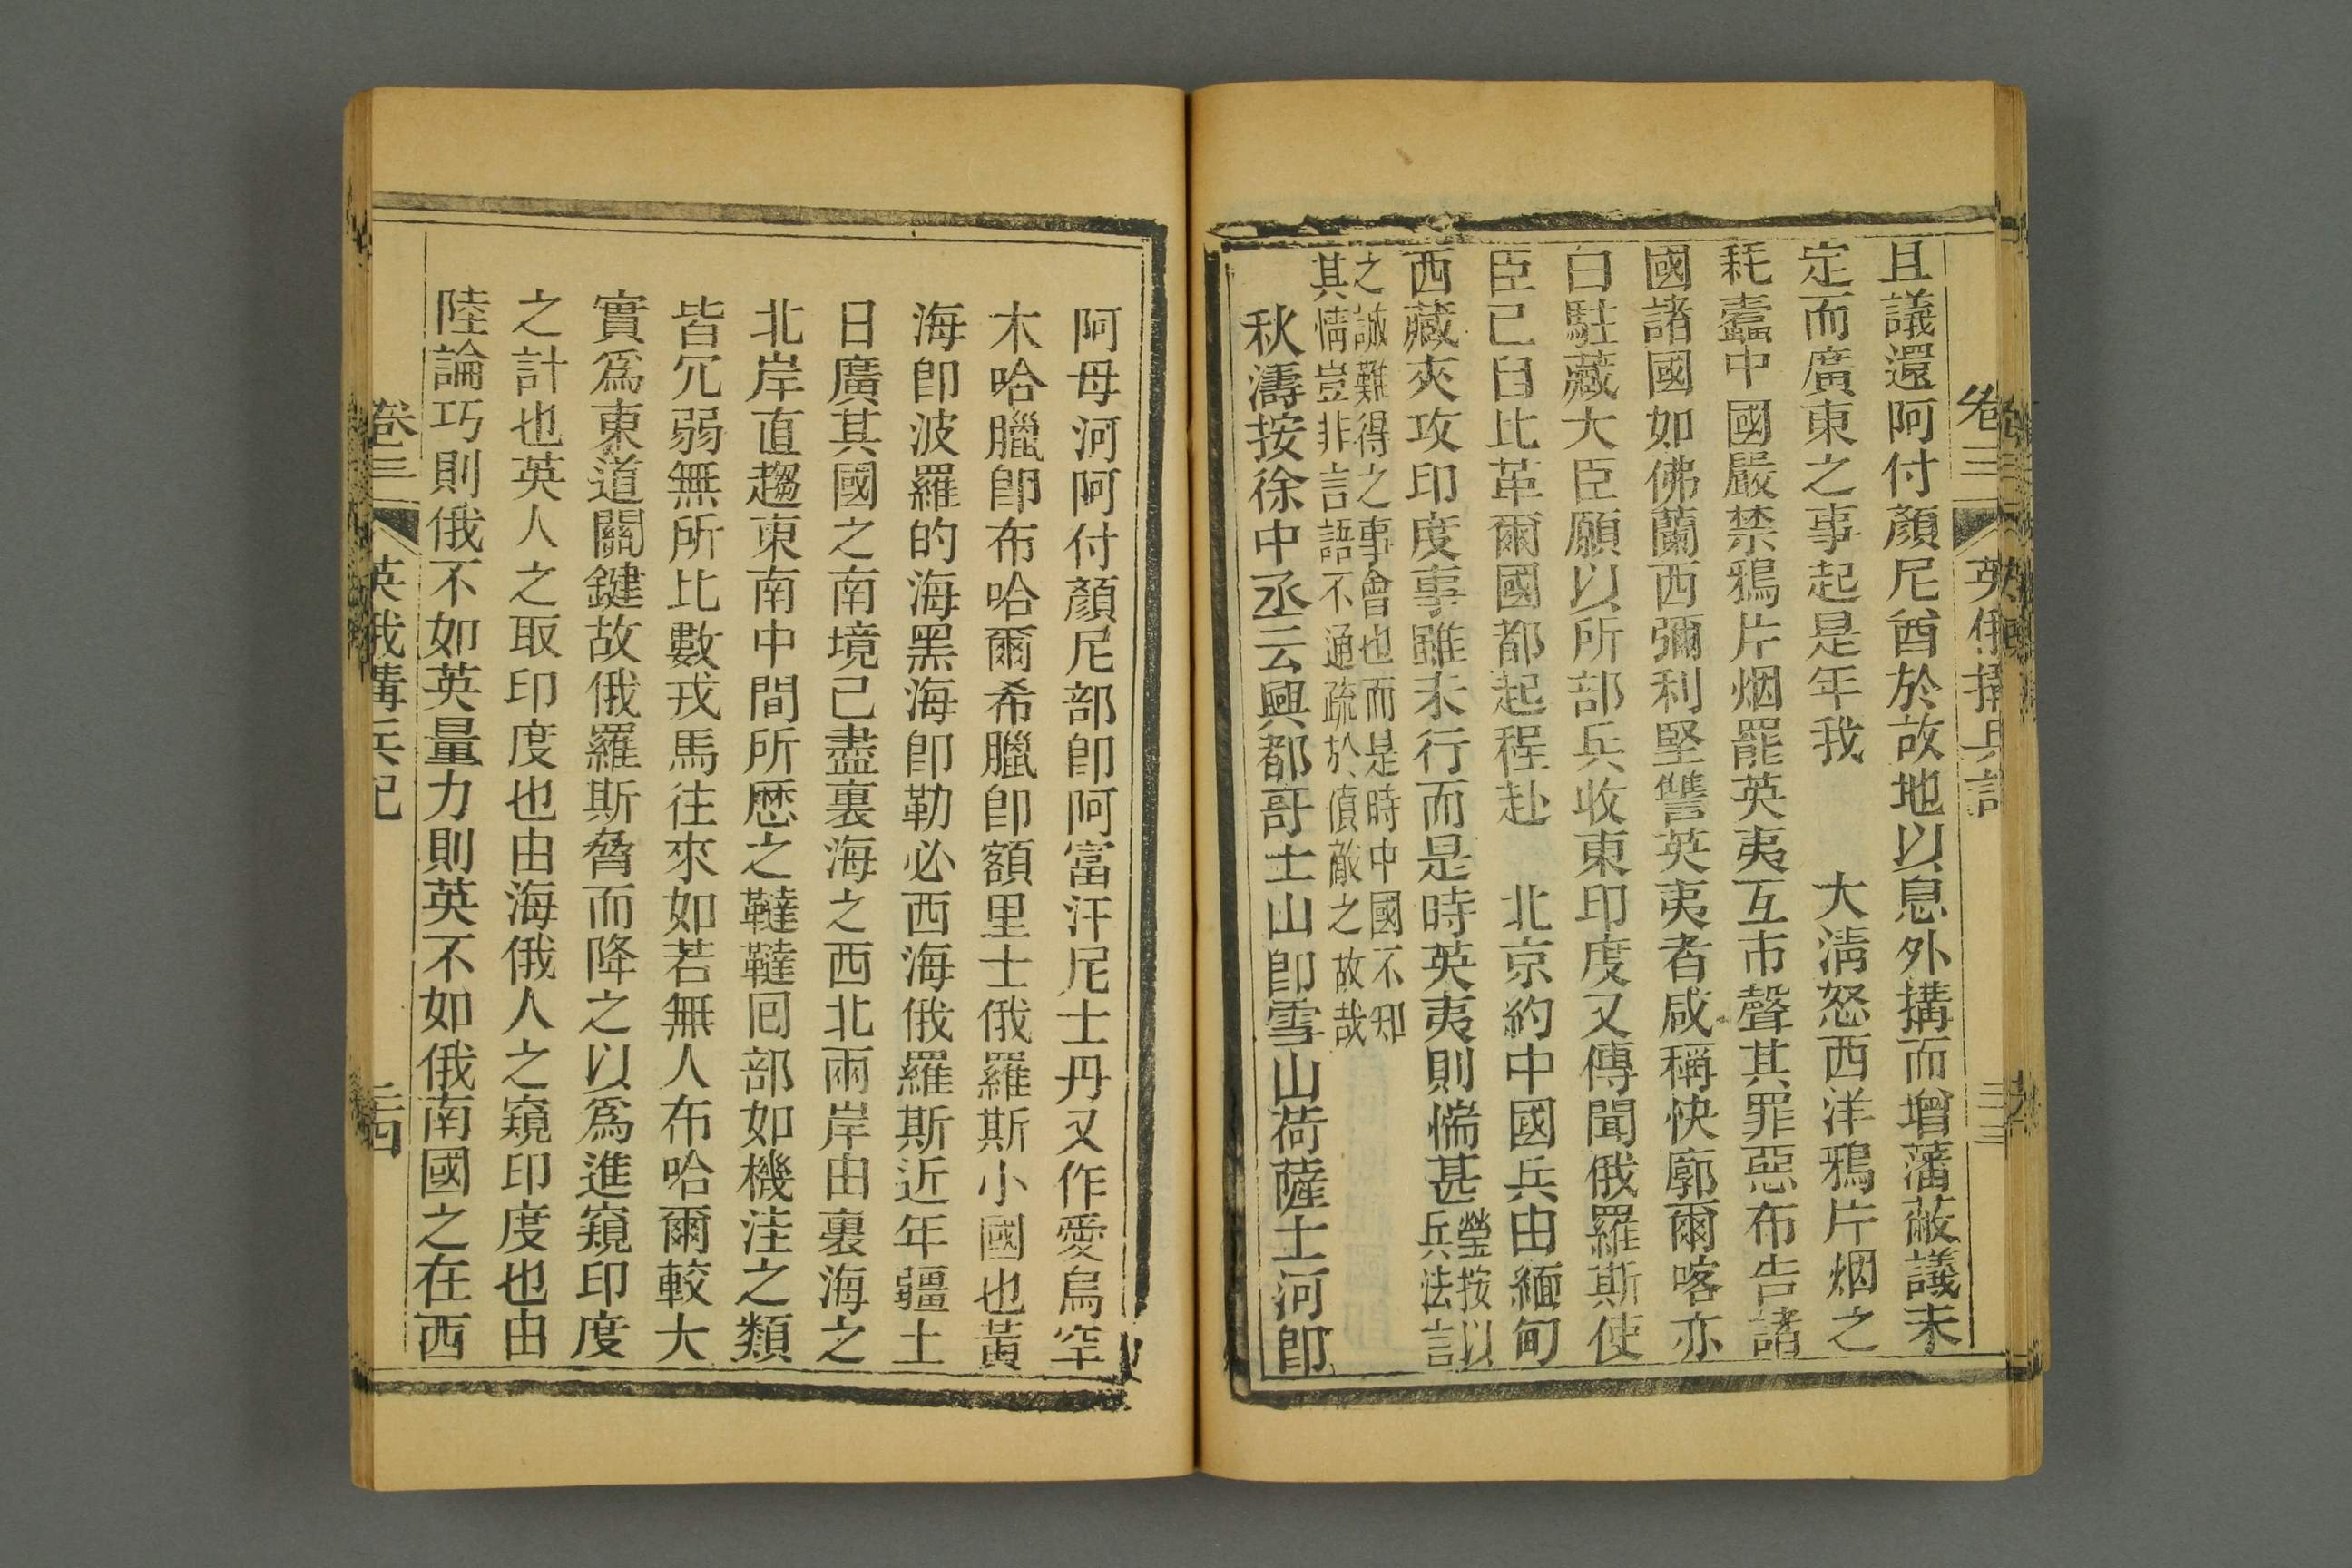 卷三
英俄搆兵記
三三
且議還阿付顏尼酋於故地以息外搆而增藩蔽議未
定而廣東之事起是年我 大淸怒西洋鴉片烟之
耗蠹中國嚴禁鴉片烟罷英夷互市聲其罪惡布告諸
國諸國如佛蘭西彌利堅讐英夷者咸稱快廓爾喀亦
白駐藏大臣願以所部兵收東印度又傳聞俄羅斯使
臣已自比革爾國都起程赴 北京約中國兵由緬甸
西藏夾攻印度事雖未行而是時英夷則惴甚
瑩按以
兵法言
之誠難得之事會也而是時中國不知
其情豈非言語不通疏於偵敵之故哉
秋濤按徐中丞云興都哥士山卽雪山荷薩士河卽
阿母河阿付顏尼部卽阿富汗尼士丹又作愛烏罕
木哈臘卽布哈爾希臘卽額里士俄羅斯小國也黃
海卽波羅的海黑海卽勒必西海俄羅斯近年疆土
日廣其國之南境已盡裏海之西北兩岸由裏海之
北岸直趨東南中間所歷之韃韃囘部如機洼之類
皆冗弱無所比數戎馬往來如若無人布哈爾較大
實爲東道關鍵故俄羅斯脅而降之以爲進窺印度
之計也英人之取印度也由海俄人之窺印度也由
陸論巧則俄不如英量力則英不如俄南國之在西
卷三
英俄搆兵記
三四